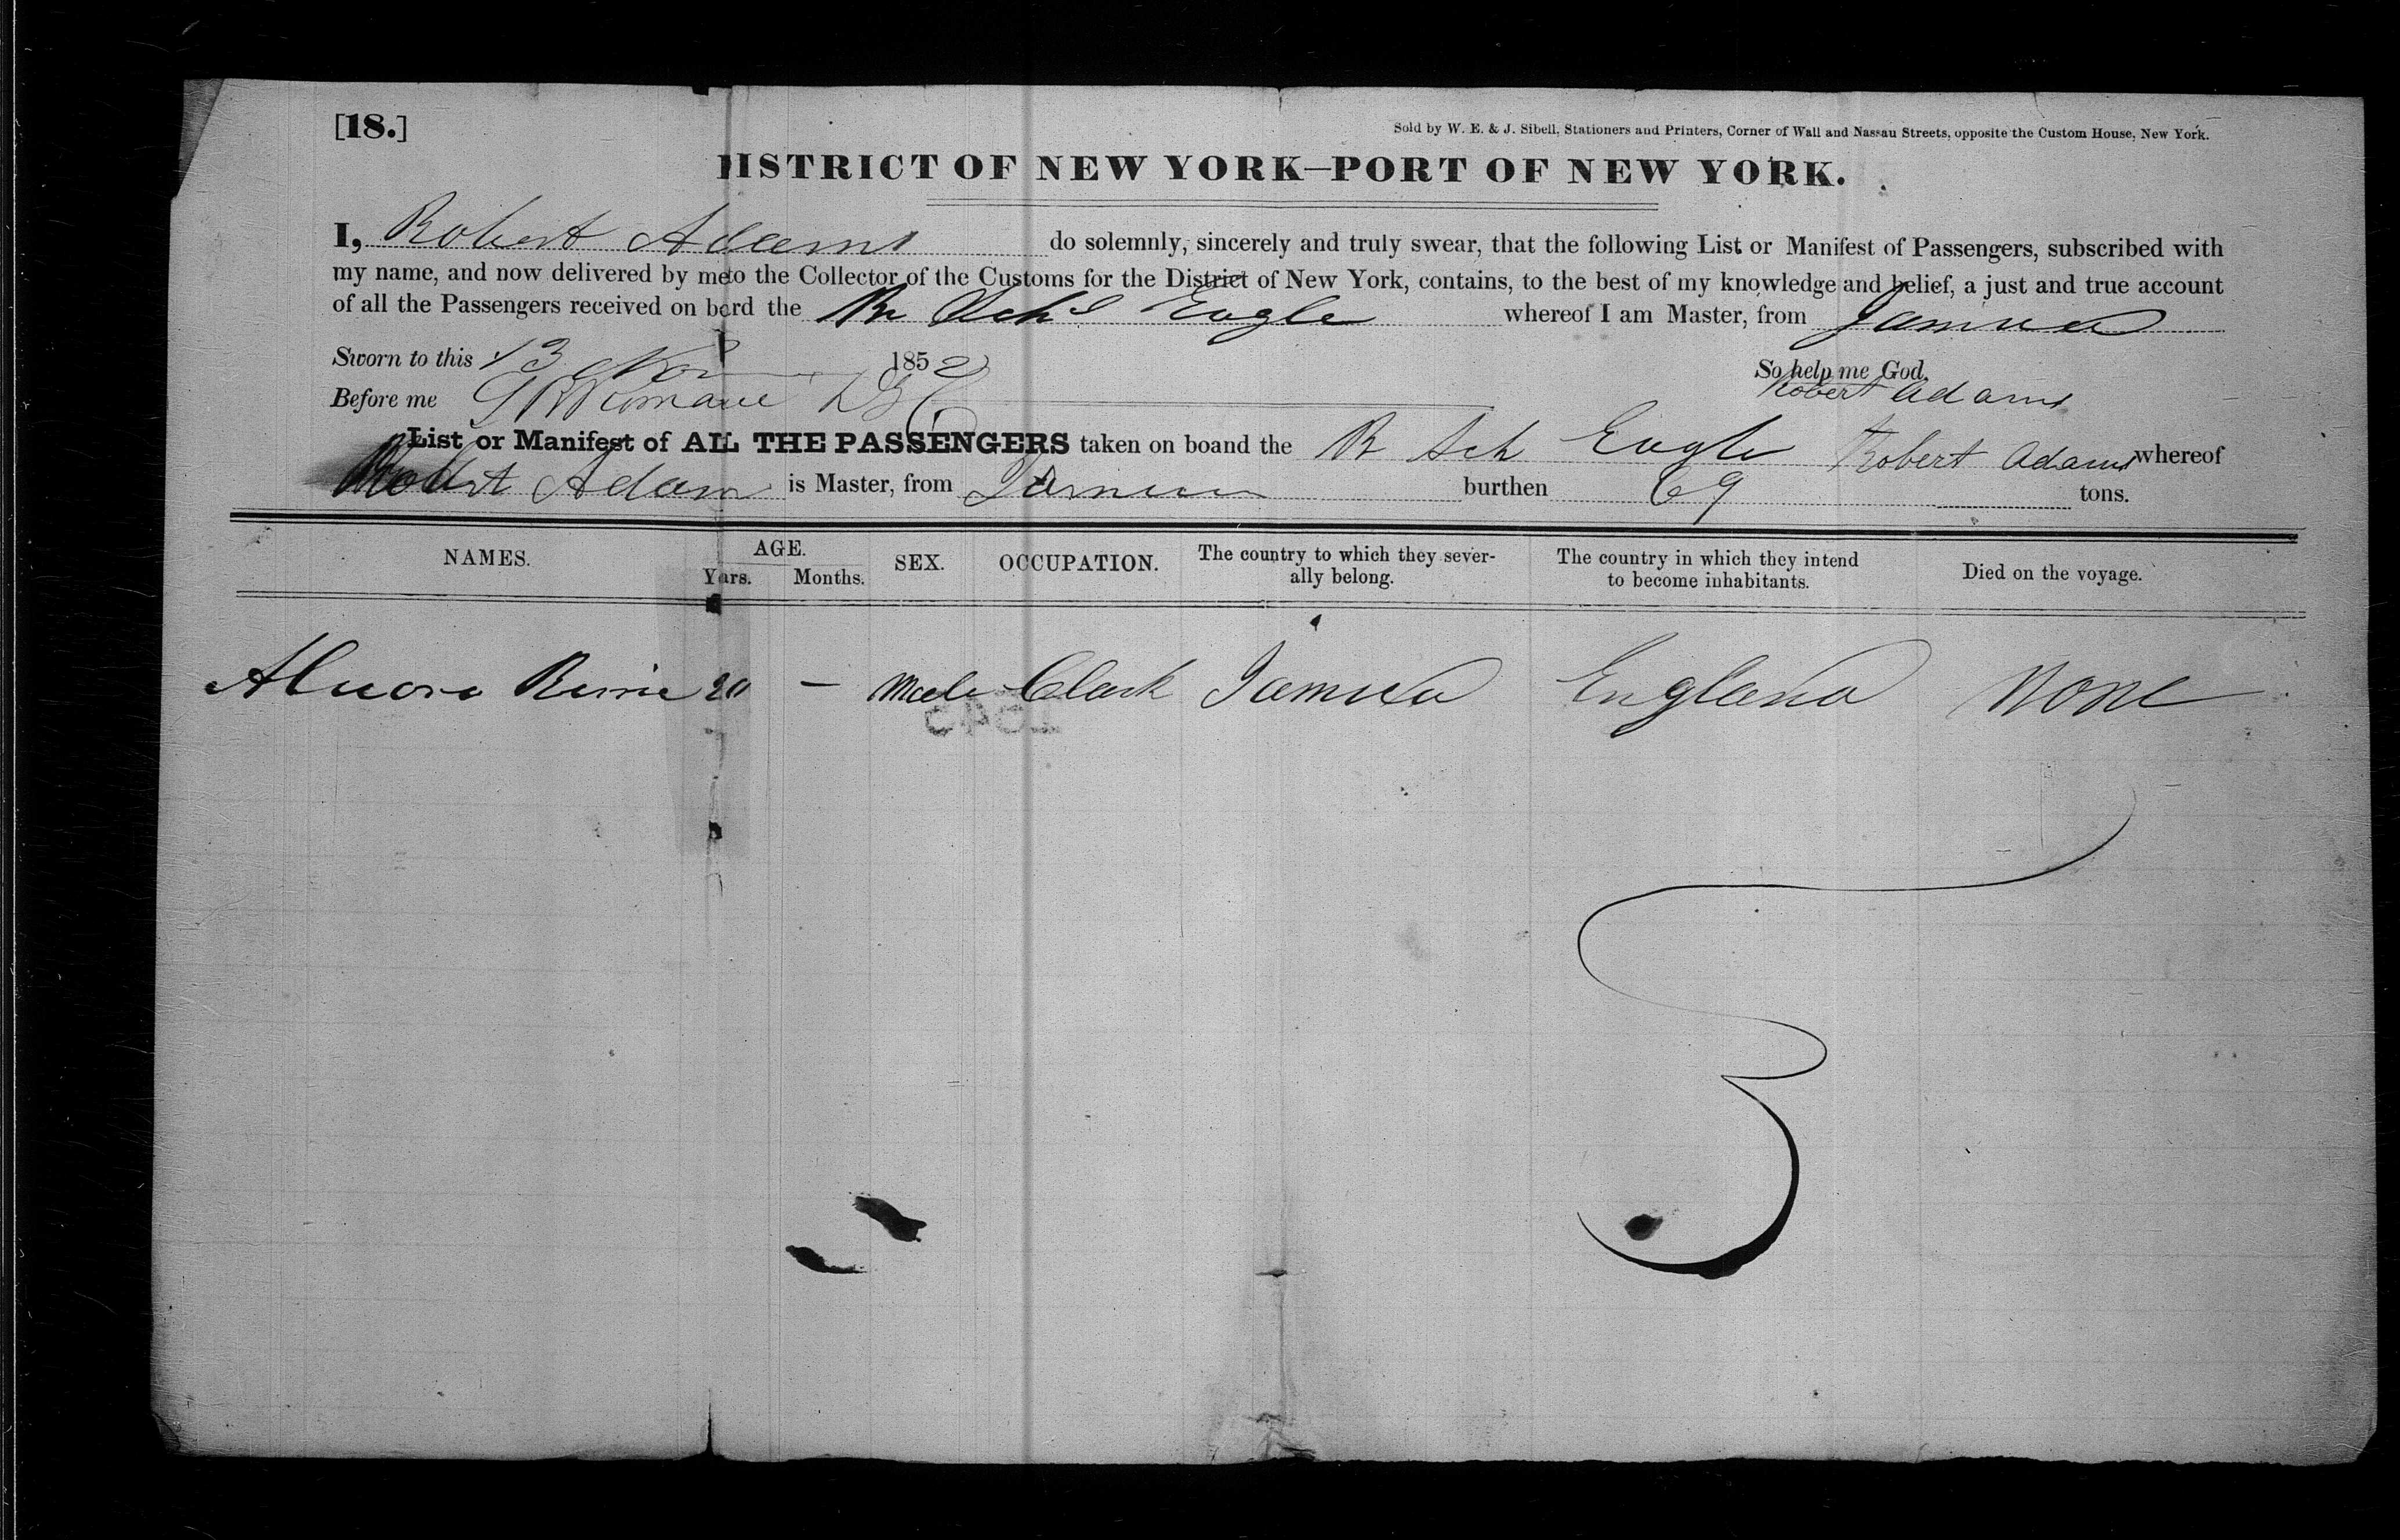 [18.]
Sold by W. E. & J. Sibell, Stationers and Printers, Corner of Wall and Nassau Streets, opposite the Custom House, New York.
DISTRICT OF NEW YORK—PORT OF NEW YORK.
I, Robert Adams do solemnly, sincerely and truly swear, that the following List or Manifest of Passengers, subscribed with
my name, and now delivered by me to the Collector of the Customs for the District of New York, contains, to the best of my knowledge and belief, a just and true account
of all the Passengers received on bord the Br Schr Eagle whereof I am Master, from Jamica
Sworn to this 13 Nov 1852 So help me God.
Before me Robert Adams
List or Manifest of ALL THE PASSENGERS taken on boand the B Sch Eagle Robert Adams whereof
Robert Adams is Master, from burthen 69 tons.
NAMES. AGE. SEX. OCCUPATION. The country to which they sever- The country in which they intend Died on the voyage.
Years. Months. ally belong. to become inhabitants.
20 — Male Clark Jamica England None